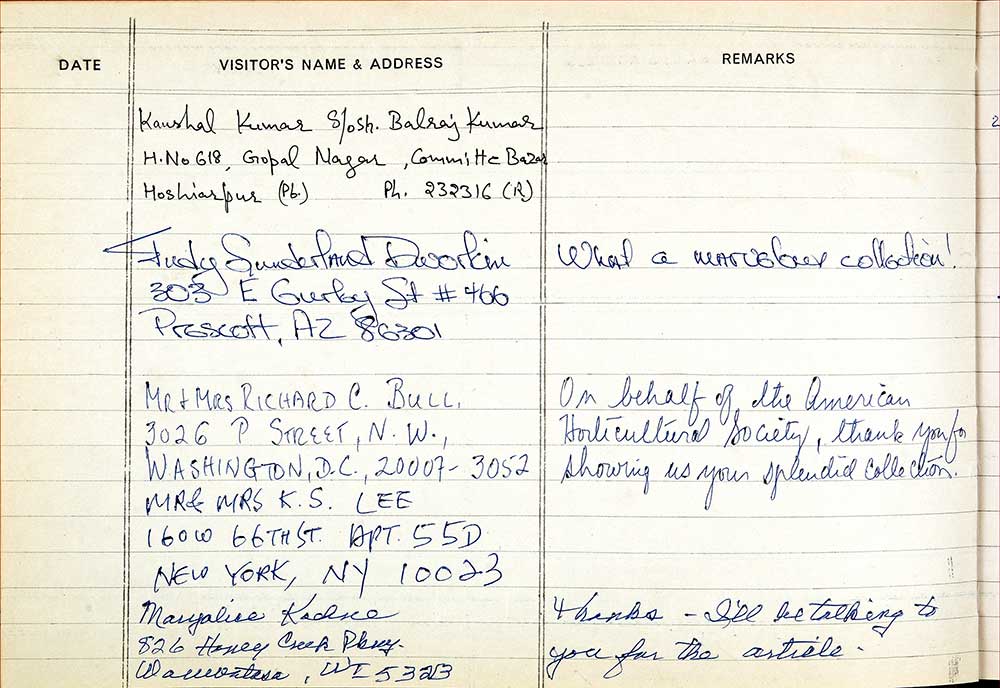 DATE VISITOR'S NAME & ADDRESS REMARKS
Kaushal Kumar S/o Sh. Balraj Kumar
H.No 618, Gopal Nagar, Committe Bazar
Hoshiarpur (Pb.) Ph. 232316 (R)
Judy Sunderland Dworkin What a marvelous collection!
303 E Gurley St # 466
Prescott, AZ 86301
Mr & Mrs Richard C. Bull, On behalf of the American
3026 P Street, N.W., Horticultural Society, thank you for
Washington, D.C., 20007-3052 showing us your splendid collection.
MR & MRS K.S. LEE
160 W 66TH ST. APT. 55D
NEW YORK, NY 10023
Maryalice Thanks - I'll be talking to
826 Honey Creek Pkwy. you for the article.
Wauwatosa, WI 53213